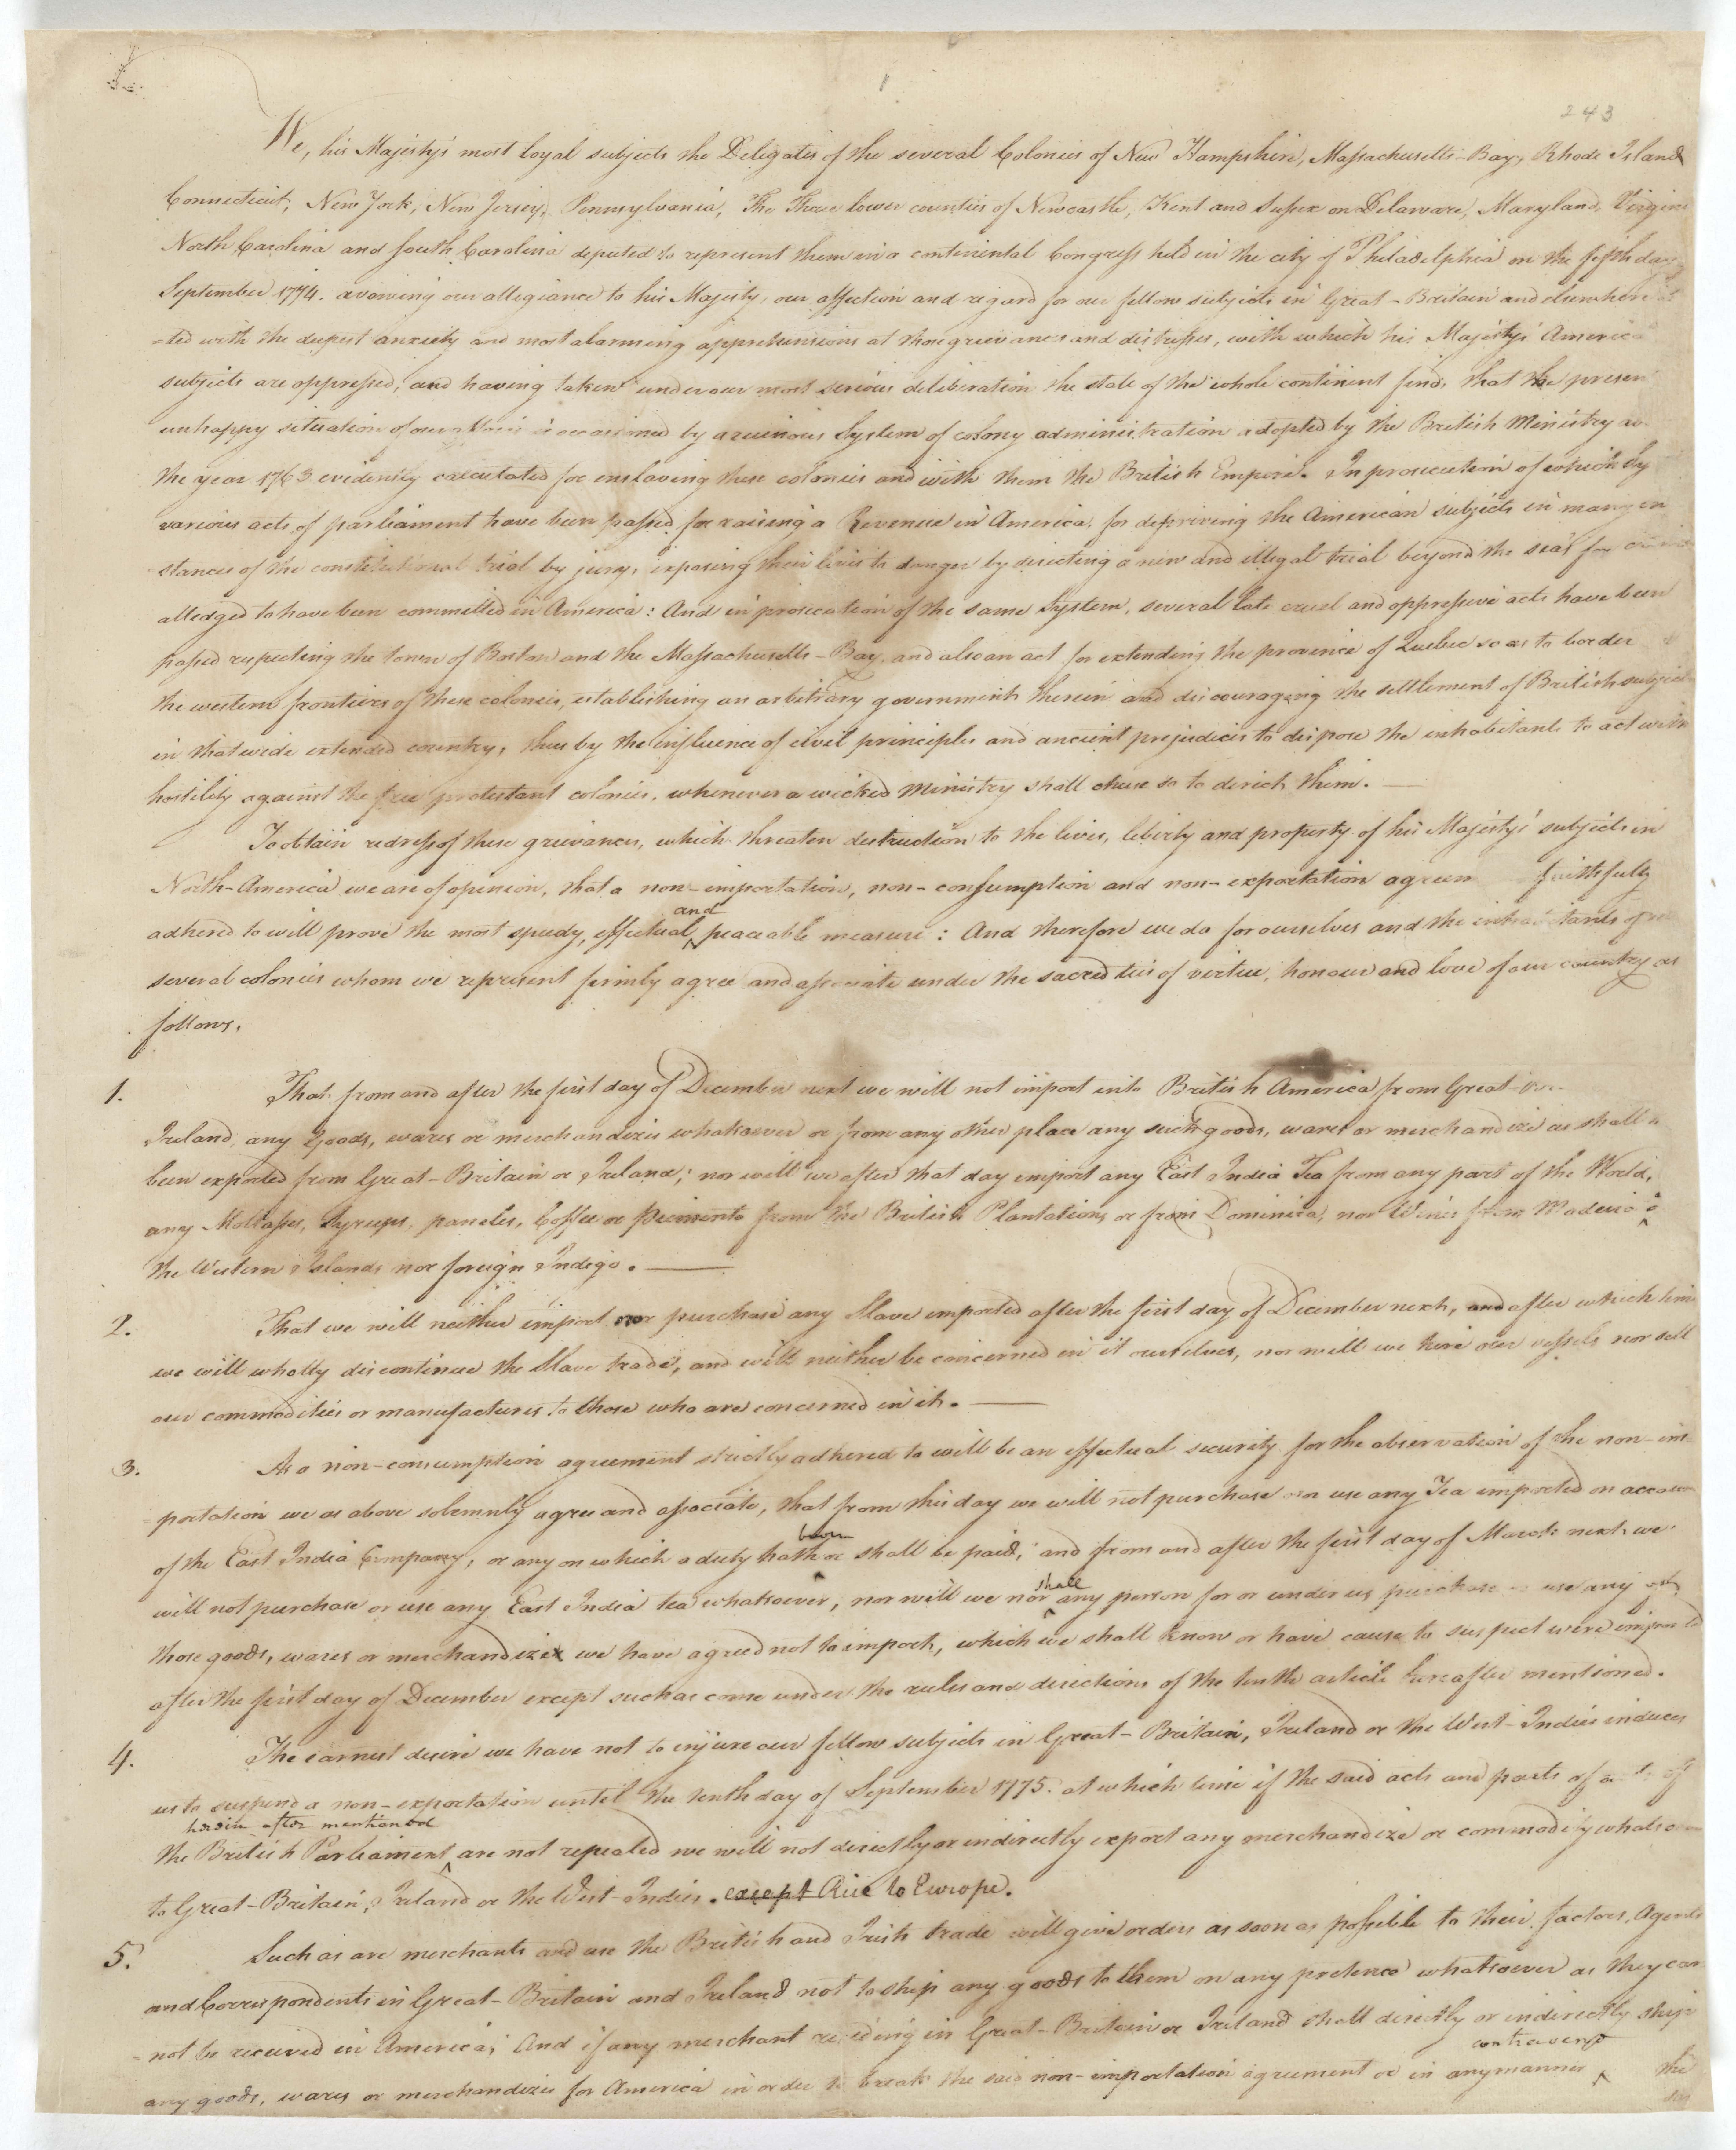 1
243
We, his Majesty's most loyal subjects the Delegates of the several Colonies of New Hampshire, Massachusetts-Bay, Rhode Island
Connecticut, New York, New Jersey, Pennsylvania, The Three lower counties of Newcastle, Kent and Sussex on Delaware, Maryland, Virgini
North Carolina and South Carolina deputed to represent them in a continental Congress held in the city of Philadelphia on the fifth day
September 1774. avowing our allegiance to his Majesty, our affection and regard for our fellow subjects in Great-Britain and elsewhere
=ted with the deepest anxiety and most alarming apprehensions at those grievances and distresses, with which his Majesty's America
subjects are oppressed, and having taken under our most serious deliberation the state of the whole continent find, that the presen
unhappy situation of our affairs is occasioned by a ruinous System of colony administration adopted by the British Ministry
the year 1763 evidently calculated for enslaving these colonies and with them the British Empire. In prosecution of which Sy
various acts of parliament have been passed for raising a Revenue in America, for depriving the American subjects in many in
stances of the constitutional trial by jury, exposing their lives to danger by directing a new and illegal trial beyond the seas for
alledged to have been committed in America: And in prosecution of the same System, several late cruel and oppressive acts have been
passed respecting the town of Boston and the Massachusetts-Bay, and also an act for extending the province of Quebec so as to border
the western frontiers of these colonies, establishing an arbitrary government therein and discouraging the settlement of British subject
in that wide extended country, thus by the influence of civil principles and ancient prejudices to dispose the inhabitants to act with
hostility against the free protestant colonies, whenever a wicked Ministry shall chuse so to direct them.
To obtain redress of these grievances, which threaten destruction to the lives, liberty and property of his Majesty's subjects in
North-America we are of opinion, that a non-importation, non-consumption and non-exportation agreem faithfully
adhered to will prove the most speedy, effectual and peaceable measure: And therefore we do for ourselves and the inhabitants of
several colonies whom we represent firmly agree and associate under the sacred ties of virtue, honour and love of our country as
follows.
1. That from and after the first day of December next we will not import into British America from Great-
Ireland, any Goods, wares or merchandizes whatsoever or from any other place any such goods, wares or merchandize as shall
been exported from Great-Britain or Ireland; nor will we after that day import any East India Tea from any part of the World,
any Molasses, Syrups, paneles, Coffee or Piemento from the British Plantations or from Dominica, nor Wines from Madeira
the Western Islands nor foreign Indigo.
2. That we will neither import nor purchase any Slave imported after the first day of December next, and after which time
we will wholly discontinue the Slave trade, and will neither be concerned in it ourselves, nor will we hire our vessels nor sell
our commodities or manufactures to those who are concerned in it.
3. As a non-consumption agreement strictly adhered to will be an effectual security for the observation of the non-im=
=portation we as above solemnly agree and associate, that from this day we will not purchase or use any Tea imported on accoun
of the East India Company, or any on which a duty hath been or shall be paid; and from and after the first day of March next we
will not purchase or use any East India tea whatsoever, nor will we nor shall any person for or under us purchase or use any of
those goods, wares or merchandize we have agreed not to import, which we shall know or have cause to suspect were imported
after the first day of December except such as come under the rules and directions of the tenth article hereafter mentioned.
4. The earnest desire we have not to injure our fellow subjects in Great-Britain, Ireland or the West-Indies induces
us to suspend a non-exportation until the tenth day of September 1775. at which time if the said acts and parts of acts of
herein after mentioned
the British Parliament are not repealed we will not directly or indirectly export any merchandize or commodity whatsoe
to Great-Britain, Ireland or the West-Indies. except Rice to Europe.
5. Such as are merchants and use the British and Irish trade will give orders as soon as possible to their factors, Agents
and Correspondents in Great-Britain and Ireland not to ship any goods to them on any pretence whatsoever as they can
=not be received in America; And if any merchant residing in Great-Britain or Ireland shall directly or indirectly ship
contravene
any goods, wares or merchandizes for America in order to break the said non-importation agreement or in any manner the